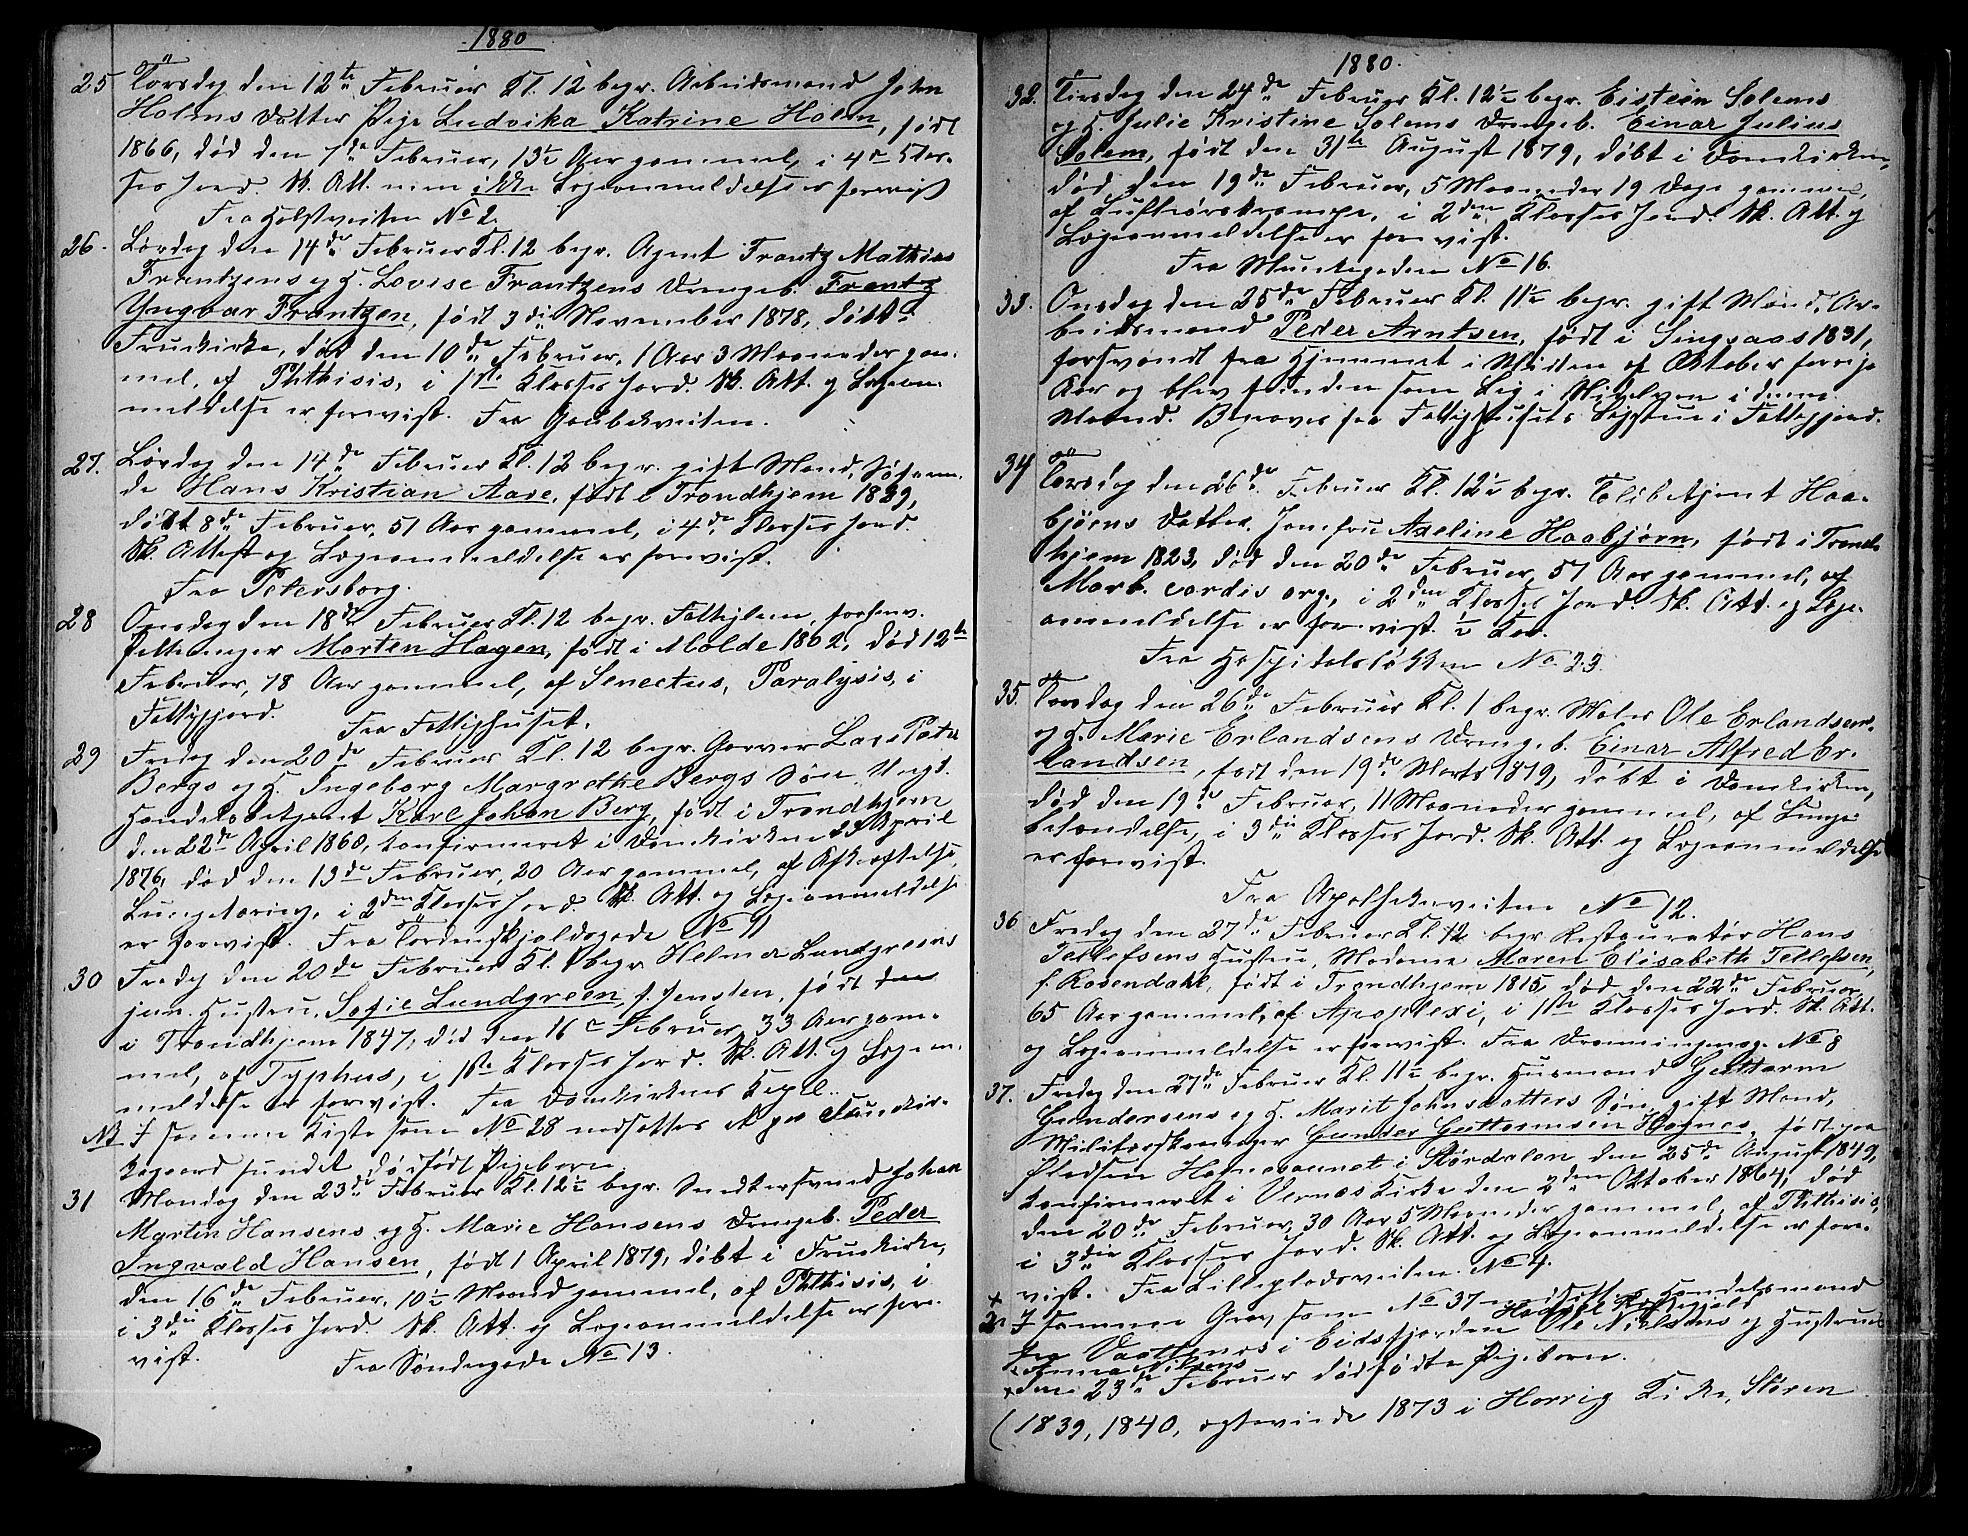 1880
25 Torsdag den 12te Februar Kl. 12 begr. Arbeidsmand John
Holms Datter Pige Ludovika Katrine Holm, født
1866, død den 7de Februar, 13½ Aar gammel, i 4de Klas-
ses Jord. Sk. Att. men ikke Lægeanmeldelse er forevist
Fra Holstveiten No 2.
26. Lørdag den 14de Februar Kl. 12 begr. Agent Frantz Mathias
Frantzens og H. Lovise Frantzens Drengeb. Frantz
Yngvar Frantzen, født 3die November 1878, døbt i
Fruekirke, død den 10de Februar, 1 Aar 3 Maaneder gam-
mel, af Phthisis, i 1ste Klasses Jord. Sk. Att. og Lægean-
meldelse er forevist. Fra Gaubekveiten.
27. Lørdag den 14de Februar Kl. 12 begr. gift Mand, Søfaren-
de Hans Kristian Aase, født i Trondhjem 1829,
død 8de Februar, 51 Aar gammel, i 4de Klasses Jord.
Sk. Attest og Lægeanmeldelse er forevist.
Fra Petersborg.
28 Onsdag den 18de Februar Kl. 12 begr. Fattiglem, forhenv.
Morten Hagen, født i Molde 1802, død 12te
Februar, 78 Aar gammel, af Senectus, Paralysis, i
Fattigjord. Fra Fattighuset.
29 Fredag den 20de Februar Kl. 12 begr. Garver Lars Peter
Bergs og H. Ingeborg Margrethe Bergs Søn Ungk.
Handelsbetjent Karl Johan Berg, født i Trondhjem
den 22de April 1860, konfirmeret i Domkirken 23 April
1876, død den 13de Februar, 20 Aar gammel, af
i 2den Klasses Jord. Sk. Att. og Lægeanmeldelse
er forevist. Fra Tordenskjoldsgade No 11
30 Fredag den 20de Februar Kl. 1 begr. Helmer Lundgreens
jun. Hustru, Sofie Lundgreen, f. Jensten, født
i Trondhjem 1847, død den 16de Februar, 33 Aar gam-
mel, af Typhus, i 1ste Klasses Jord. Sk. Att. og Lægean-
meldelse er forevist. Fra Domkirkens Kapel.
NB I samme Kiste som No 28 nedsattes et paa Fruekir-
kegaard fundet dødfødt Pigebarn
31 Mandag den 23de Februar Kl. 12½ begr. Snedkersvend Johan
Martin Hansens og H. Marie Hansens Drengeb. Peder
Ingvald Hansen, født 1 April 1879, døbt i Fruekirke,
den 16de Februar, 10½ Maaned gammel, af Phthisis, i
i 3die Klasses Jord. Sk. Att. og Lægeanmeldelse er fore-
vist. Fra Søndregade No 13.
1880.
32. Tirsdag den 24de Februar Kl. 12½ begr. Eistein Solems
og H. Julie Kristine Solems Drengeb. Einar Julius
Solem, født den 31te August 1879, døbt i Domkirken,
død den 19de Februar, 5 Maaneder 19 Dage gammel,
af Luftrørskrampe, i 2den Klasses Jord. Sk. Att. og
Lægeanmeldelse er forevist.
Fra Munkegaden No 16.
33. Onsdag den 25de Februar Kl. 11½ begr. gift Mand, Ar-
beidsmand Peder Arntsen, født i Singsaas 1831,
forsvandt fra Hjemmet i Midten af Oktober forrige
Aar og blev funden som Lig i Nidelven i denne
Maaned. Begraves fra Fattighusets Ligstue i Fattigjord.
34 Torsdag den 26de Februar Kl. 12½ begr. Toldbetjent Haa-
bjørns Datter Jomfru Axeline Haabjørn, født i Trond-
hjem 1823, død den 20de Februar, 57 Aar gammel, af
Morb. cordis org., i 2den Klasses Jord. Sk. Att. og Læge-
anmeldelse er forevist.
Fra Hospitalsløkken No 23.
35. Torsdag den 26de Februar Kl. 1 begr. Maler Ole Erlandsens
og H. Marie Erlandsens Drengeb. Einar Alfred Er-
landsen, født den 19de Marts 1879, døbt i Domkirken,
død den 19de Februar, 11 Maaneder gammel, af Lunge-
betændelse, i 3die Klasses Jord. Sk. Att. og Lægeanmeldelse
er forevist.
Fra Apothekerveiten No 12.
36 Fredag den 27de Februar Kl. 12 begr. Restauratør Hans
Tellefsens Hustru, Madame Maren Elisabeth Tellefsen,
f. Rosendahl, født i Trondhjem 1815, død den 22de Februar,
65 Aar gammel, af Apoplexi, i 1ste Klasses Jord. Sk. Att.
og Lægeanmeldelse er forevist. Fra Dronningensg. No 8
37. Fredag den 27de Februar Kl. 11½ begr. Husmand Guttorm
Gundersens og H. Marit Johnsdatters Søn, gift Mand,
Gunder Guttormsen Hognes, født paa
Pladsen i Størdalen den 25de August 1849,
konfirmeret i Vernes Kirke den 2den Oktober 1864, død
den 20de Februar, 30 Aar 5 Maaneder gammel, af Phthisis,
i 3die Klasses Jord. Sk. Att. og Lægeanmeldelse er fore-
vist. Fra Lillepladsveiten No 4.
I samme Grav som No 37 nedsattes Handelsmand
fra i Eidsfjorden Ole Nielsens og Hustrues
Anna Nilsens
den 23de Februar dødfødte Pigebarn.
(1839, 1840, ægteviede 1873 i Kirke, Støren